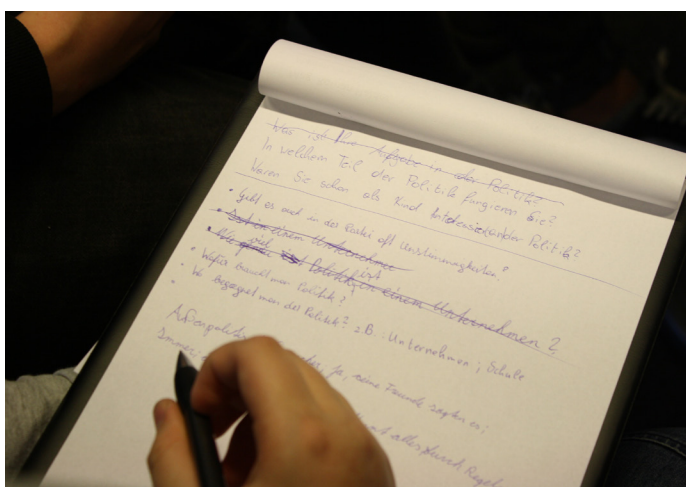 Was ist Ihre Aufgabe in der Politik?
In welchem Teil der Politik fungieren Sie?
Waren Sie schon als Kind an der Politik?
• Gibt es auch in der Partei oft Unstimmigkeiten?
• einem Unternehmen
• Wie viel Politik ist in einem Unternehmen?
• Wofür braucht man Politik?
• Wo begegnet man der Politik? z.B. Unternehmen; Schule
ja, seine Freunde sagten es;
Immer
alles durch Regel